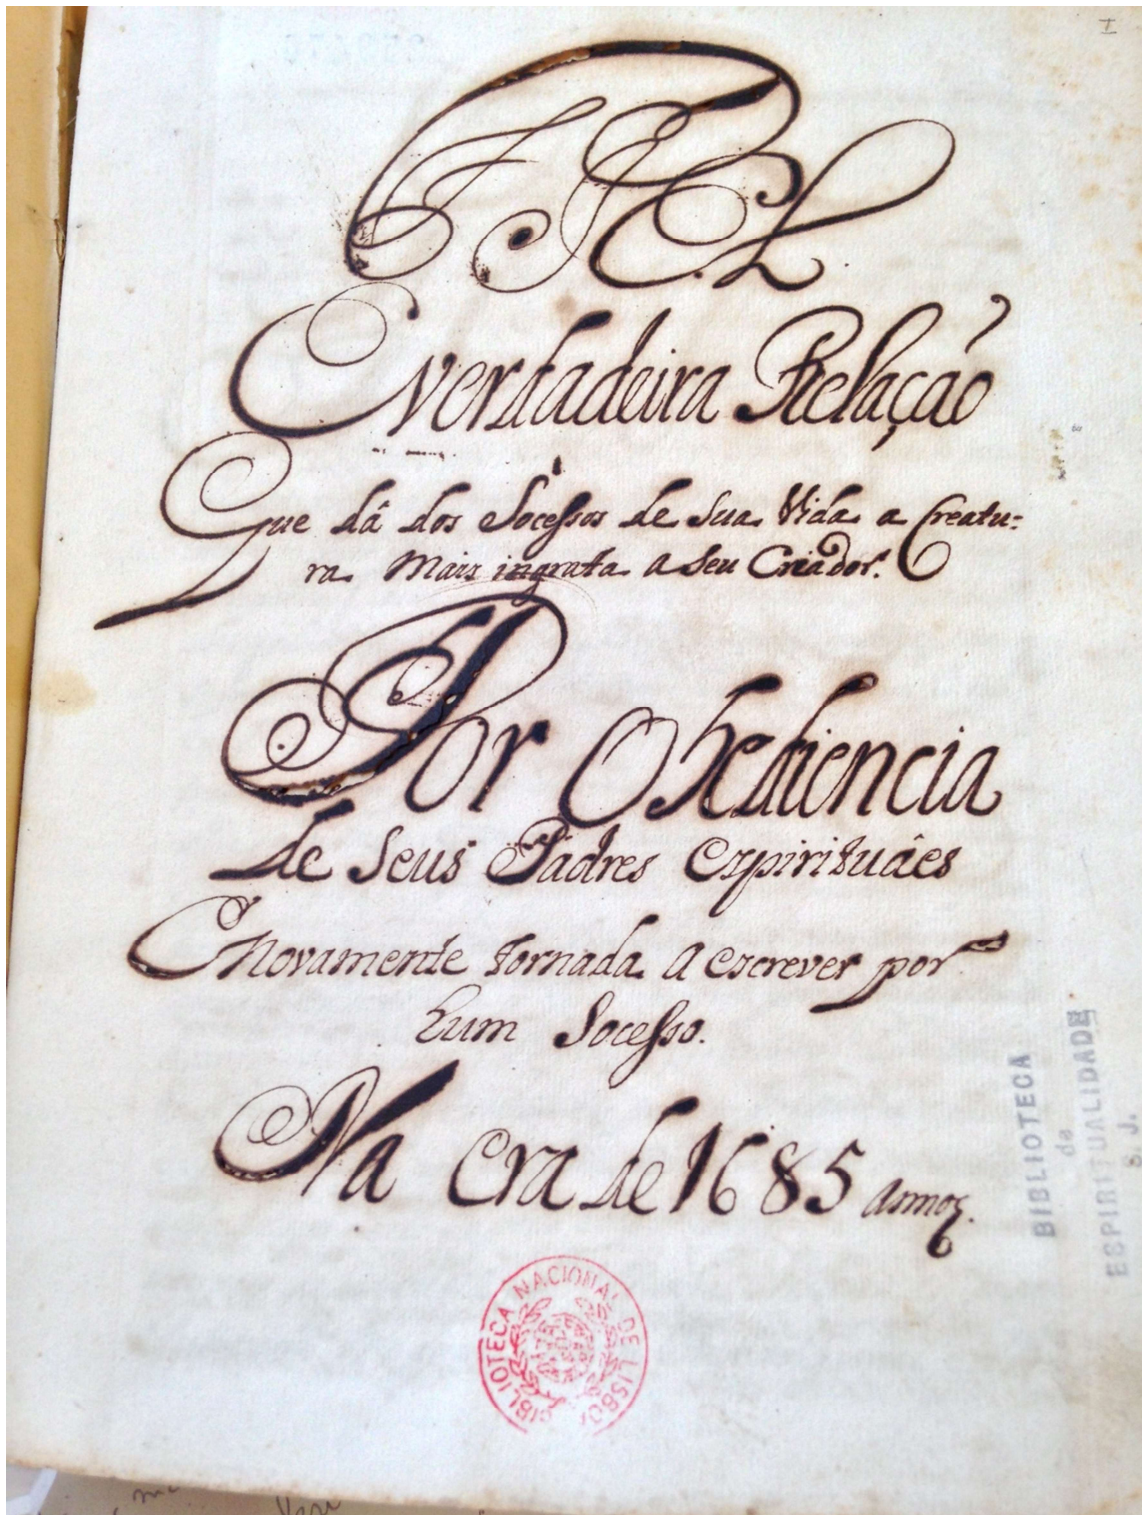 I
FIEL.
E verdadeira Relação
Que dâ dos Socessos de Sua Vida a Creatu=
ra Mais ingrata a Seu Criador.
Por Obediencia
de Seus Padres Espirituâes
E Novamente tornada a escrever por
hum Socesso.
Na Era de 1685 annos.
BIBLIOTECA
da
ESPIRITUALIDADE
S. J.
BIBLIOTECA NACIONAL DE LISBOA